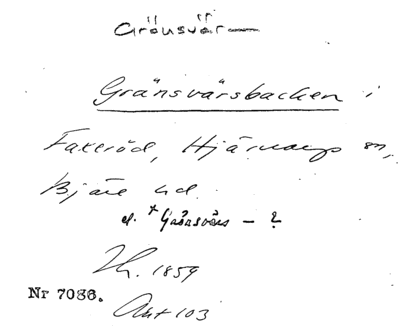 Gränsvär—
Gränsvärsbacken i
Faxeröd, Hjärnarps sn,
Bjäre hd.
d. *Gränsvärs – ?
Th. 1859
Nr 7086.
Akt 103